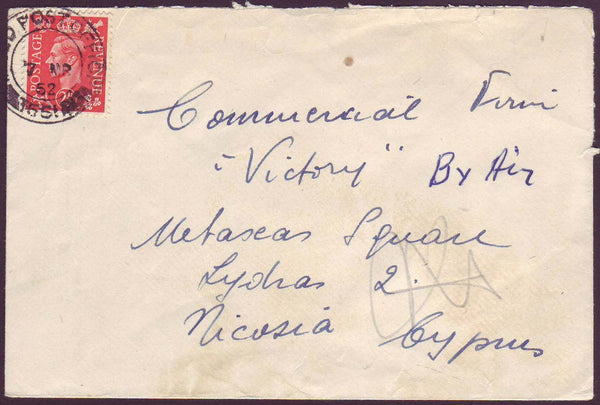 POST OFFICE
7 MR
52
POSTAGE REVENUE
Commercial Firm
"Victory" By Air
Metaxas Square
Lydras 2.
Nicosia Cyprus